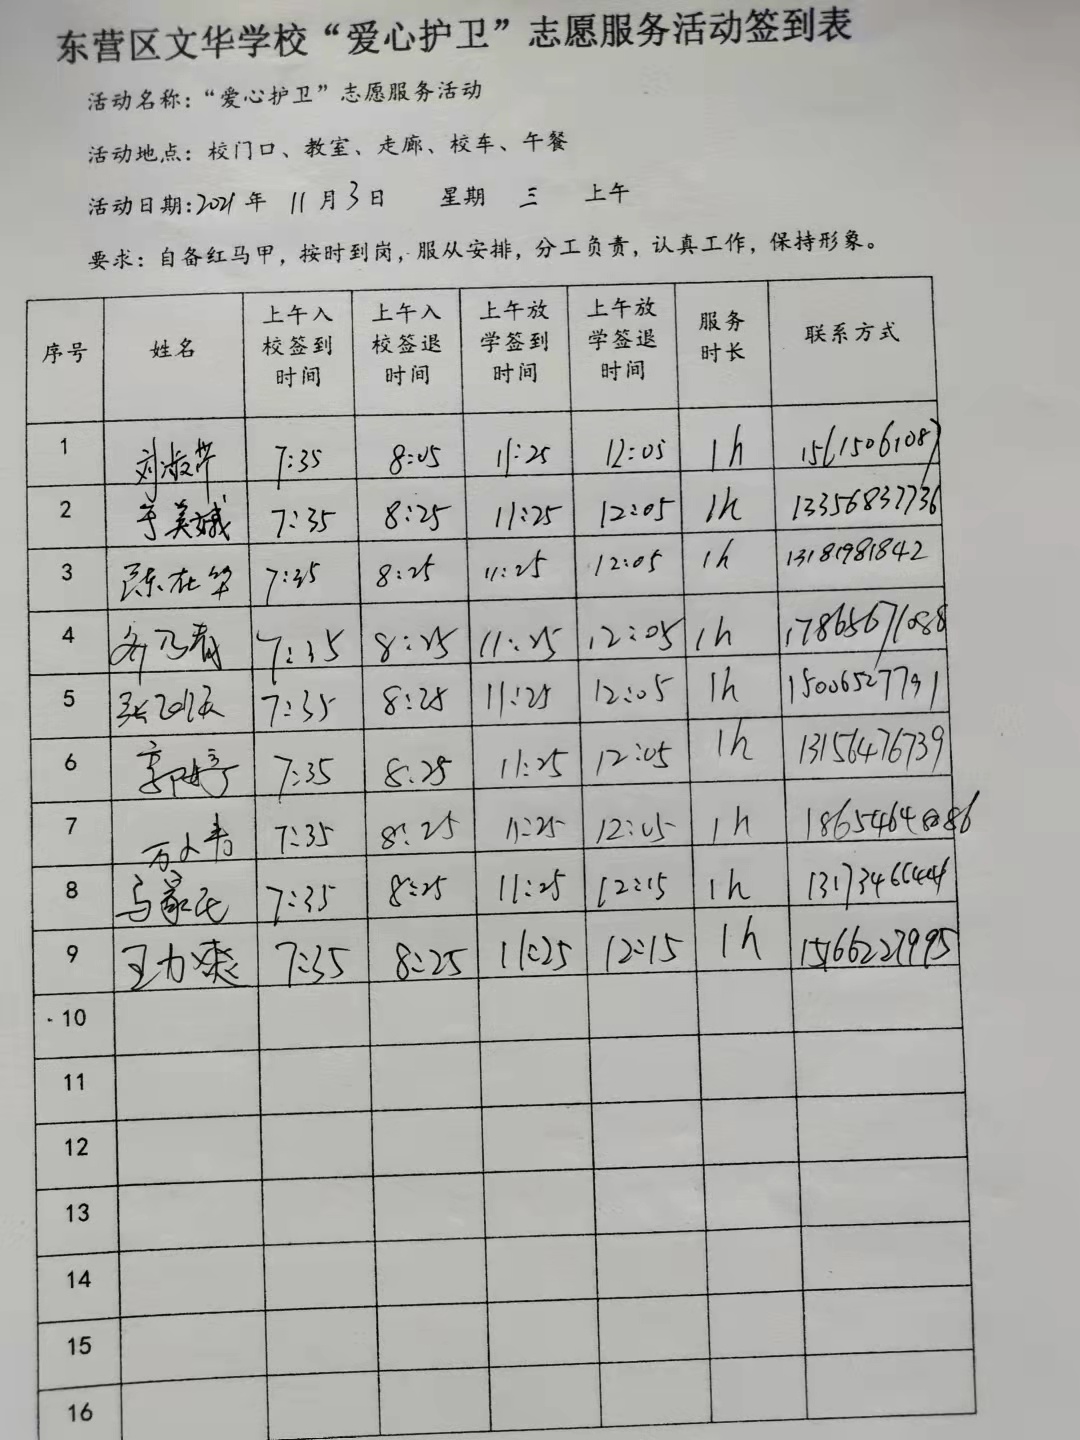 东营区文华学校“爱心护卫”志愿服务活动签到表
活动名称：“爱心护卫”志愿服务活动
活动地点：校门口、教室、走廊、校车、午餐
活动日期：2021年 11月3日 星期 三 上午
要求：自备红马甲，按时到岗，服从安排，分工负责，认真工作，保持形象。
序号 姓名 上午入校签到时间 上午入校签退时间 上午放学签到时间 上午放学签退时间 服务时长 联系方式
1 刘淑芹 7:35 8:05 11:25 12:05 1h
2 于美娥 7:35 8:25 11:25 12:05 1h 13356837736
3 陈在华 7:35 8:25 11:25 12:05 1h 13181981842
4 7:35 8:25 11:25 12:05 1h 17865671088
5 7:35 8:25 11:25 12:05 1h 15006527791
6 郭婷 7:35 8:25 11:25 12:05 1h 13156476739
7 7:35 8:25 11:25 12:05 1h
8 7:35 8:25 11:25 12:15 1h
9 王力爽 7:35 8:25 11:25 12:15 1h 15166227995
10
11
12
13
14
15
16